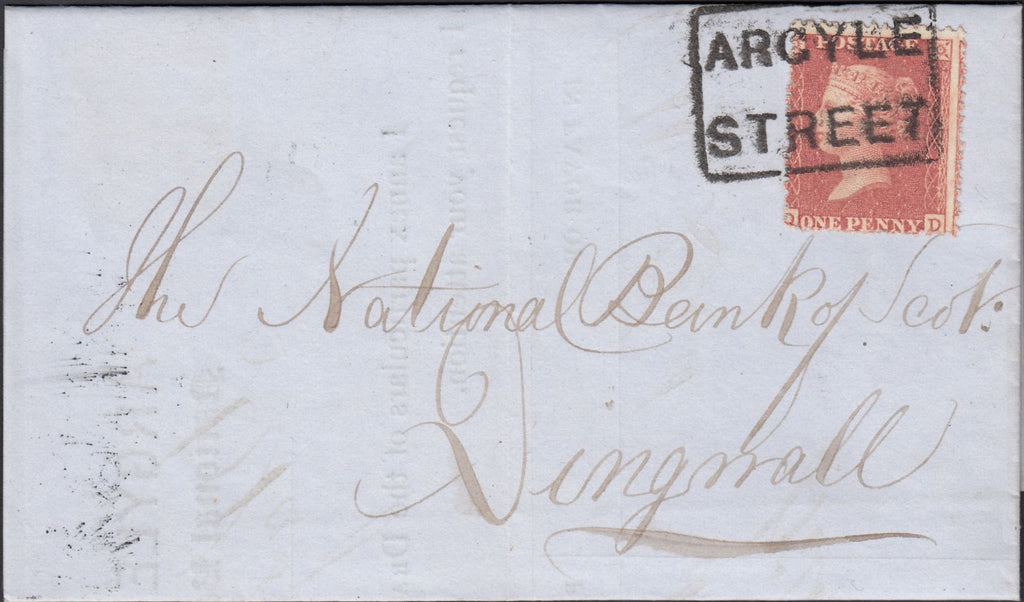 ARGYLE
STREET
POSTAGE
ONE PENNY
D
D
The National Bank of Scot:
Dingwall